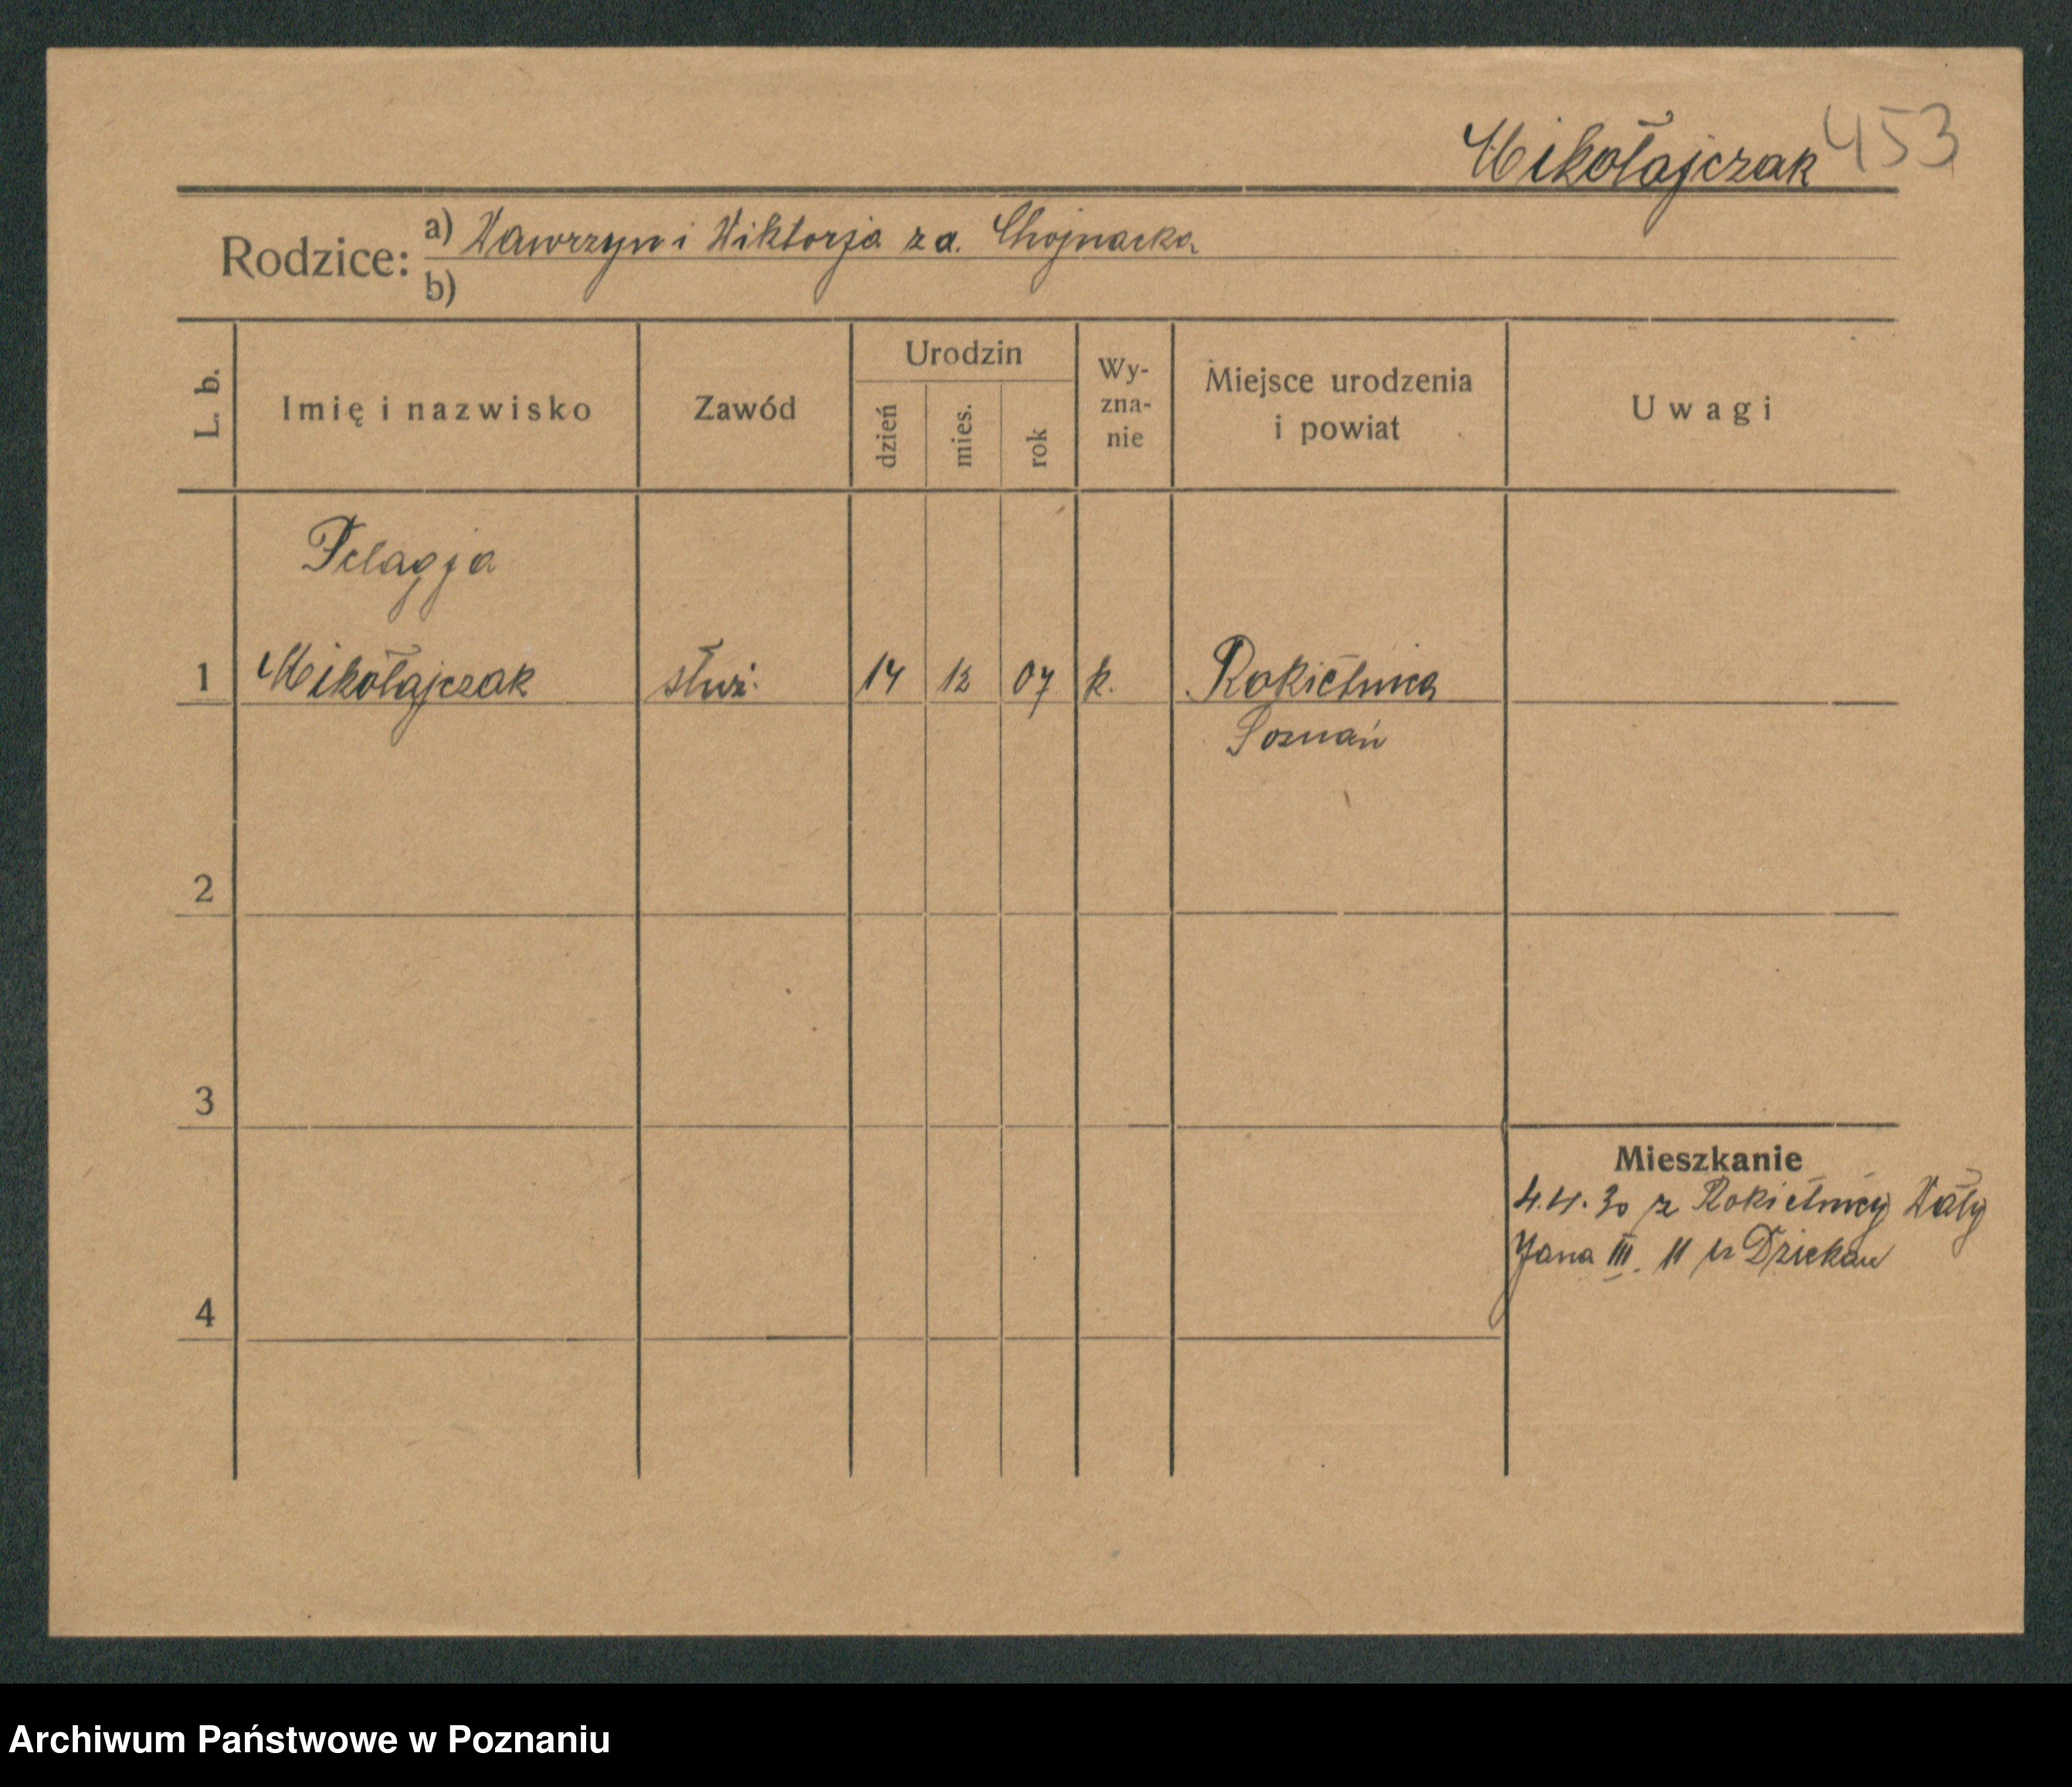 Mikołajczak 453
Rodzice: a) Wawrzyn i Wiktorja z d. Chojnacka
b)
L. b. Imię i nazwisko Zawód Urodzin dzień mies. rok Wy-zna-nie Miejsce urodzenia i powiat Uwagi
Pelagja
1 Mikołajczak służ. 14 12 07 k. Rokietnica
Poznań
2
3
Mieszkanie
4.4.30 z Rokietnicy Wały
Jana III. 11 u
4
Archiwum Państwowe w Poznaniu